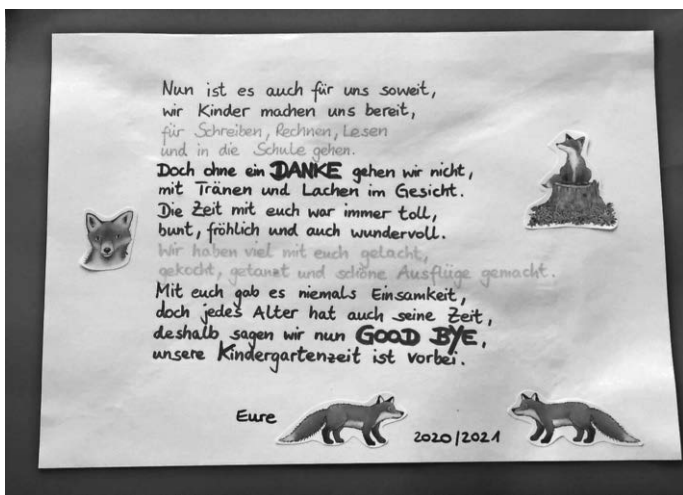 Nun ist es auch für uns soweit,
wir Kinder machen uns bereit,
für Schreiben, Rechnen, Lesen
und in die Schule gehen.
Doch ohne ein DANKE gehen wir nicht,
mit Tränen und Lachen im Gesicht.
Die Zeit mit euch war immer toll,
bunt, fröhlich und auch wundervoll.
Wir haben viel mit euch gelacht,
gekocht, getanzt und schöne Ausflüge gemacht.
Mit euch gab es niemals Einsamkeit,
doch jedes Alter hat auch seine Zeit,
deshalb sagen wir nun GOOD BYE,
unsere Kindergartenzeit ist vorbei.
Eure
2020/2021